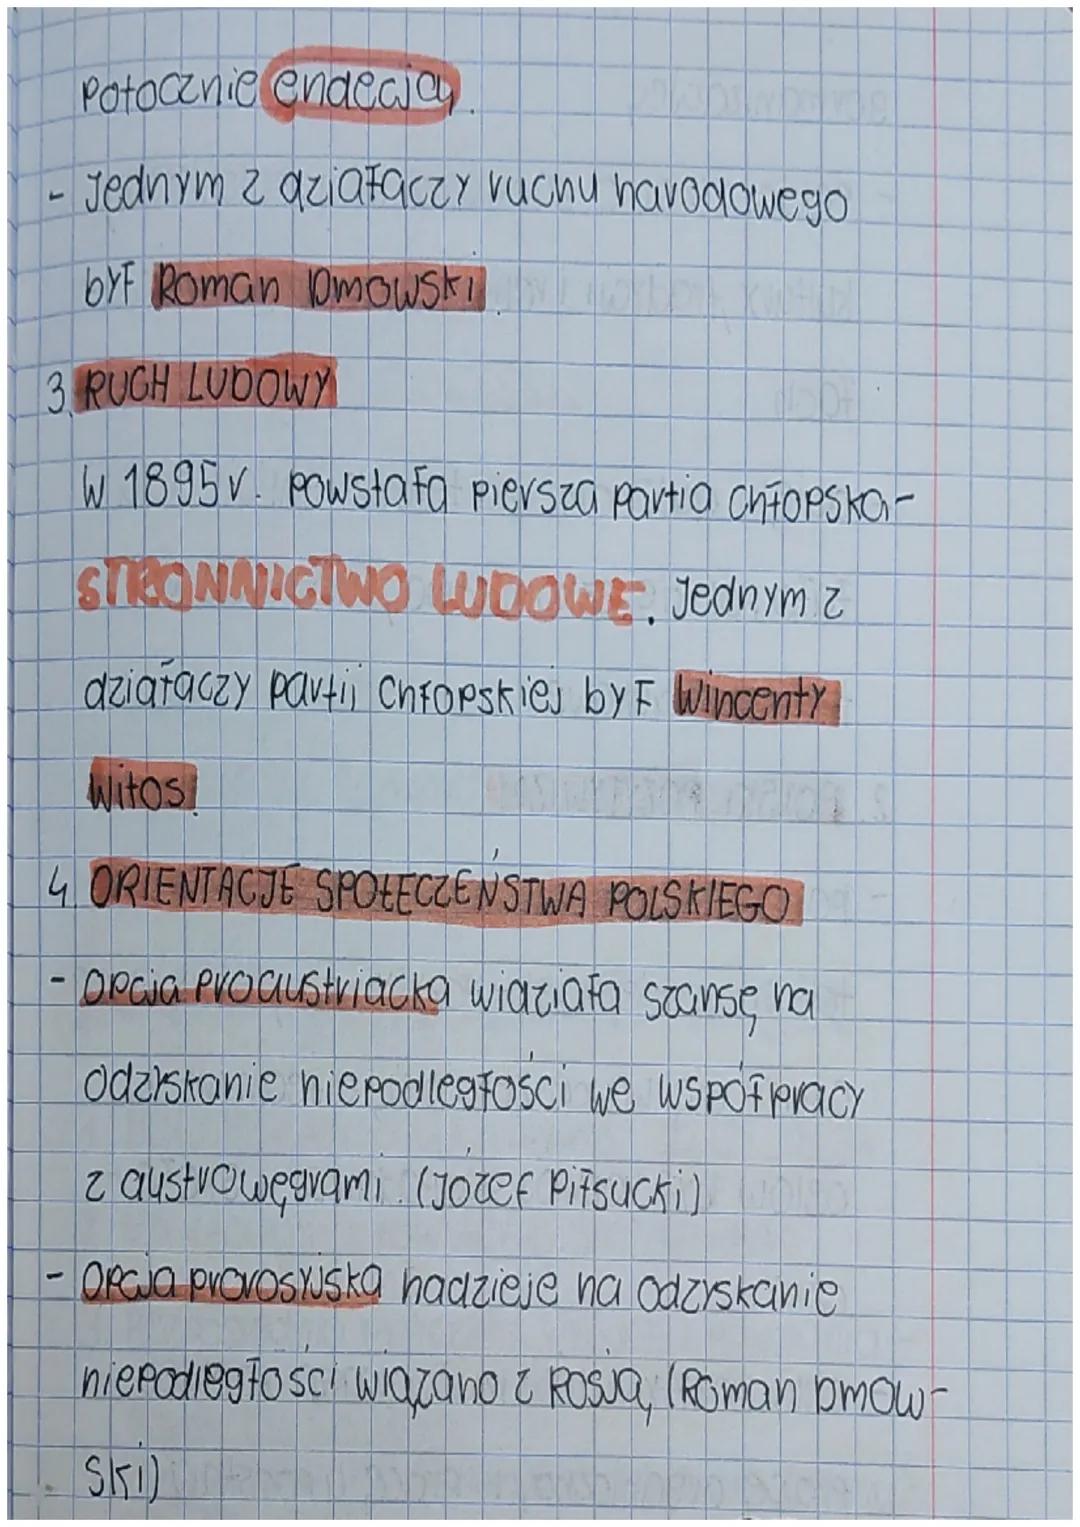 potocznie endecją.
- Jednym z działaczy ruchu narodowego
był Roman Dmowski.
3. RUCH LUDOWY
W 1895r. powstała piersza partia chłopska-
STRONNICTWO LUDOWE. Jednym z
działaczy partii chłopskiej był Wincenty
Witos.
4. ORIENTACJE SPOŁECZEŃSTWA POLSKIEGO
- opcja proaustriacka widziała szansę na
odzyskanie niepodległości we współpracy
z austrowęgrami. (Józef Piłsucki)
- Opcja prorosyjska nadzieje na odzyskanie
niepodległości wiązano z Rosją (Roman Dmow-
ski)